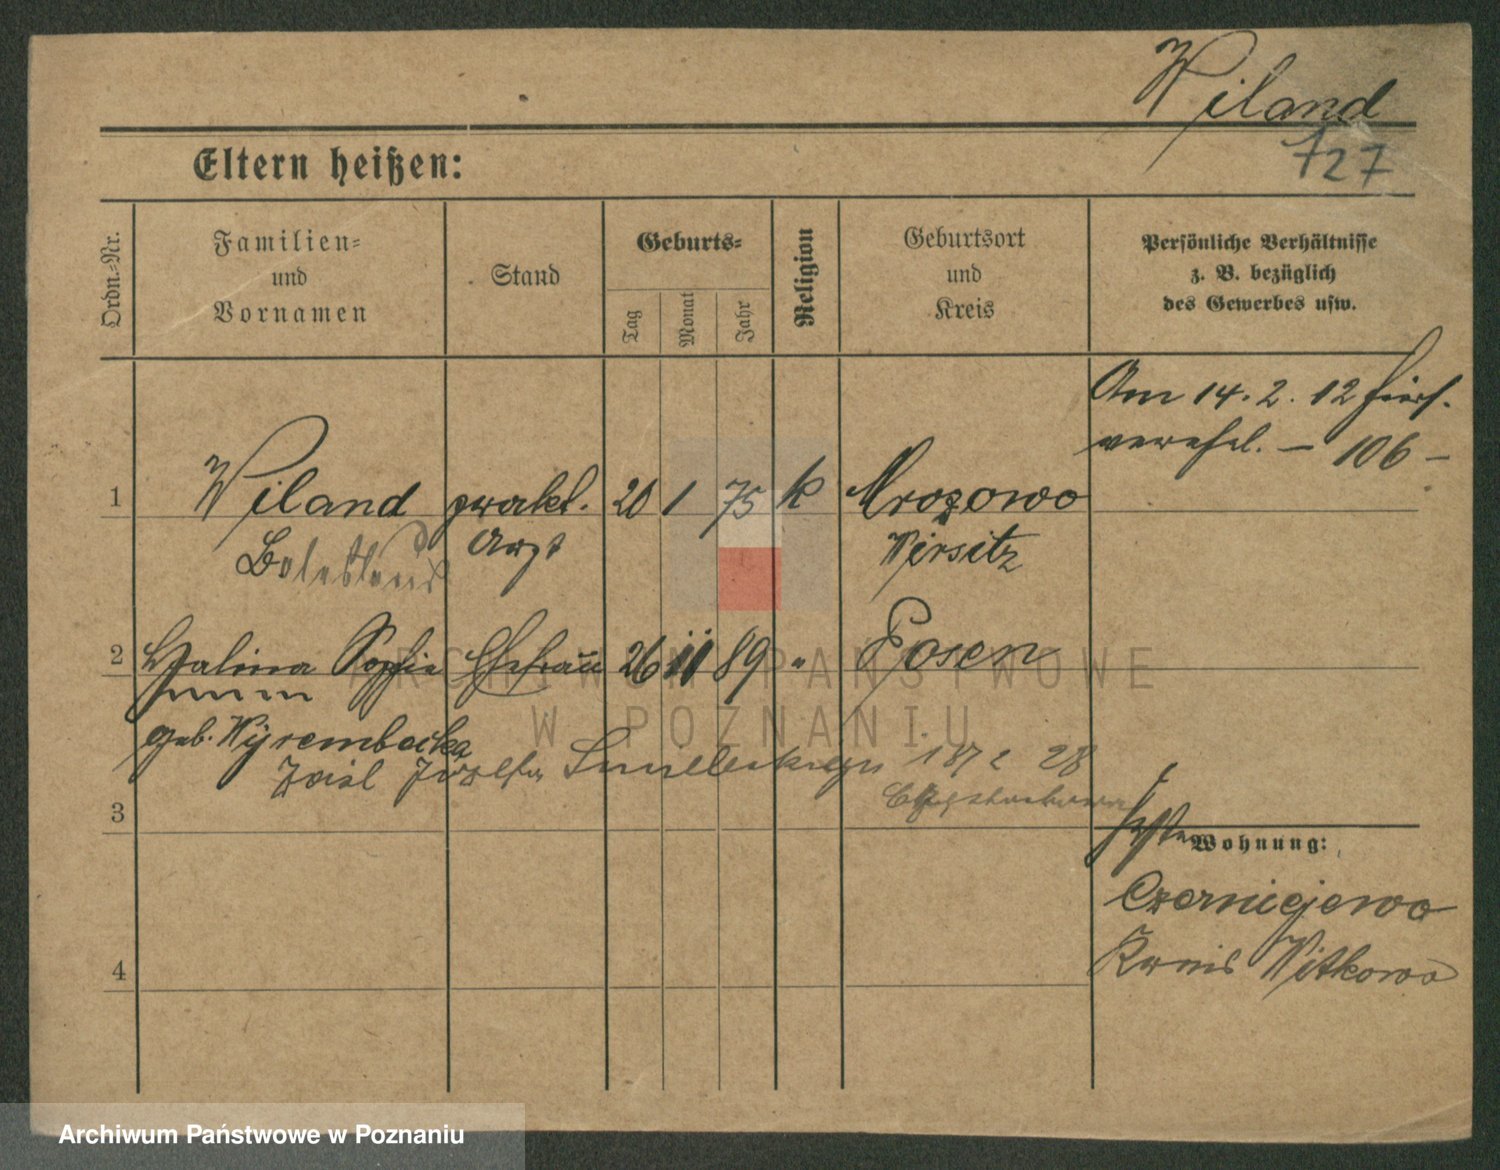 Wiland
127
Eltern heißen:
Ordn.=Nr.
Familien=
und
Vornamen
Stand
Geburts=
Tag
Monat
Jahr
Religion
Geburtsort
und
Kreis
Persönliche Verhältnisse
z. B. bezüglich
des Gewerbes usw.
Am 14. 2. 12 hiers.
verehel. – 106 –
1 Wiland prakt. 20 1 75 k Mrozowo
Boleslaus Arzt Wirsitz
2 Halina Sophie Ehefrau 26 11 89 " Posen
geb. Wyrembecka
1872 28
3
Wohnung:
Czerniejewo
Kreis Witkowo
4
ARCHIWUM PAŃSTWOWE
W POZNANIU
Archiwum Państwowe w Poznaniu